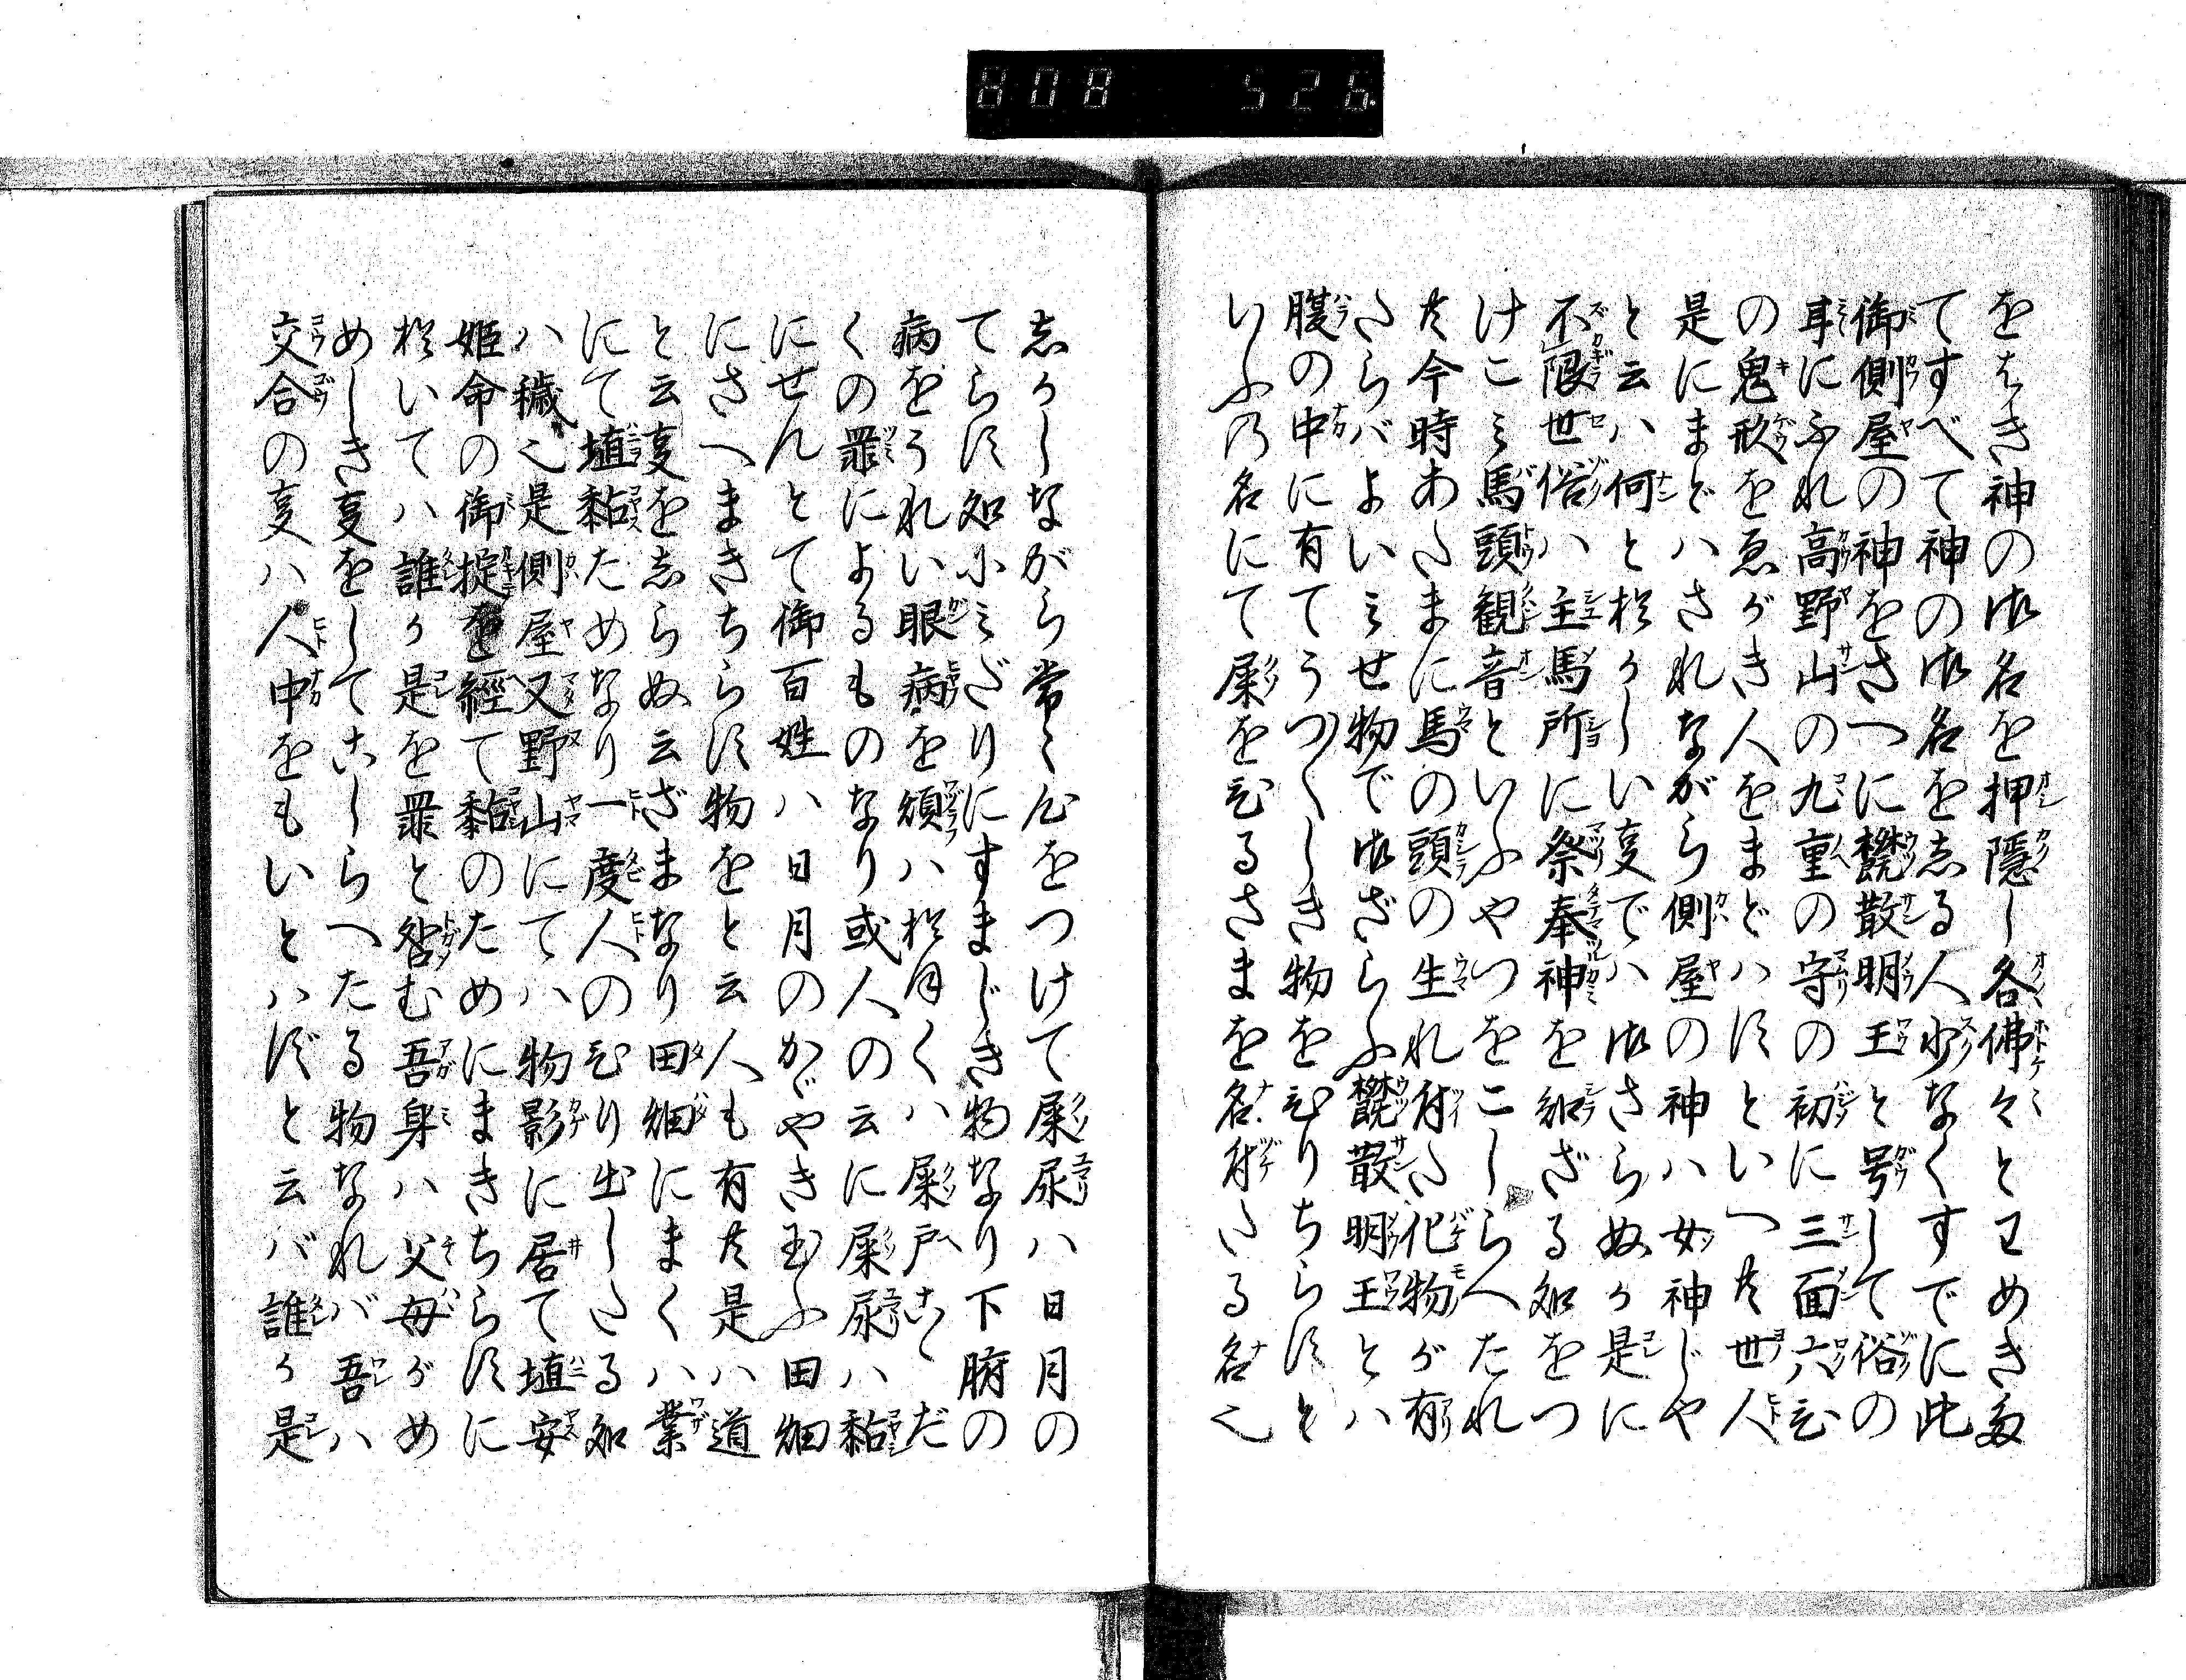 808 526
をゑき神の御名を押隠し各佛々とヱめき多
てすべて神の御名を志る人少なくすでに此
御側屋の神をさへに欝散明王と号して俗の
耳にふれ高野山の九重の守の初に三面六ひ
の鬼形をゑがき人をまどハすといへ共世人
是にまどハされながら側屋の神ハ女神じや
と云ハ何とおかしい事でハ御さらぬか是に
不限世俗ハ主馬所に祭奉神を知ざる如をつ
けこミ馬頭観音といふやつをこしらへたれ
共今時あたまに馬の頭の生れ付た化物が有
たらバよいミせ物で御ざらふ欝散明王とハ
腹の中に有てうつくしき物をひりちらすと
いふ乃名にて屎をひるさまを名付たる名也
志かしながら常々心をつけて屎尿ハ日月の
てらす如小ミざりにすまじき物なり下腑の
病をうれい眼病を煩ハおほくハ屎戸
くの罪によるものなり或人の云に屎尿ハ黏
にせんとて御百姓ハ日月のかゞやき玉ふ田畑
にさへまきちらす物をと云人も有共是ハ道
と云事を志らぬ云ざまなり田畑にまくハ業
にて埴黏ためなり一度人のひり出したる如
ハ穢也是側屋又野山にてハ物影に居て埴安
姫命の御掟を經て黏のためにまきちらすに
おいてハ誰か是を罪と咎む吾身ハ父母がめ
めしき事をしてこしらへたる物なれバ吾ハ
交合の事ハ人中をもいとハずと云バ誰か是